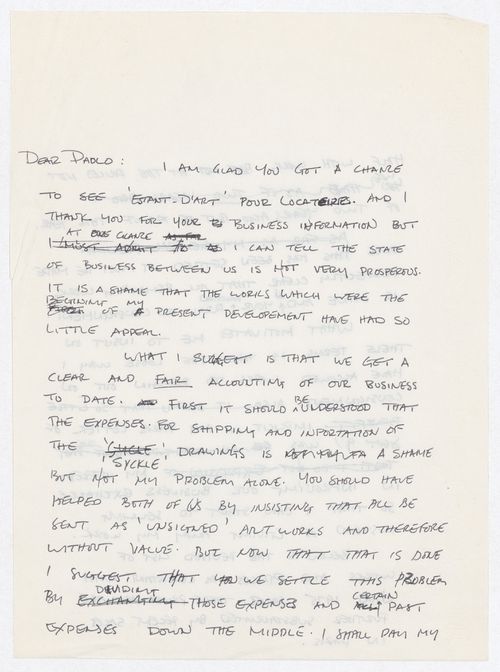 DEAR PAOLO: I AM GLAD YOU GOT A CHANZE
TO SEE 'ESTANT-D'ART' POUR LOCATERIES. AND I
THANK YOU FOR YOUR BUSINESS INFORMATION BUT
AT ONE GLANZE AS FAR
I MUST ADMIT TO I CAN TELL THE STATE
OF BUSINESS BETWEEN US IS NOT VERY PROSPEROUS.
IT IS A SHAME THAT THE WORKS WHICH WERE THE
BEGINING MY
OF A PRESENT DEVELOPEMENT HAVE HAD SO
LITTLE APPEAL.
WHAT I SUGGEST IS THAT WE GET A
CLEAR AND FAIR ACCOUNTING OF OUR BUSINESS
TO DATE. FIRST IT SHOULD BE UNDERSTOOD THAT
THE EXPENSES. FOR SHIPPING AND INPORTATION OF
THE 'CYCLE' DRAWINGS IS A SHAME
'SYCKLE'
BUT NOT MY PROBLEM ALONE. YOU SHOULD HAVE
HELPED BOTH OF US BY INSISTING THAT ALL BE
SENT AS 'UNSIGNED' ART WORKS AND THEREFORE
WITHOUT VALUE. BUT NOW THAT THAT IS DONE
I SUGGEST THAT WE SETTLE THIS PROBLEM
DIVIDING CERTAIN
BY EXCHANGING THOSE EXPENSES AND ALL PAST
EXPENSES DOWN THE MIDDLE. I SHALL PAY MY